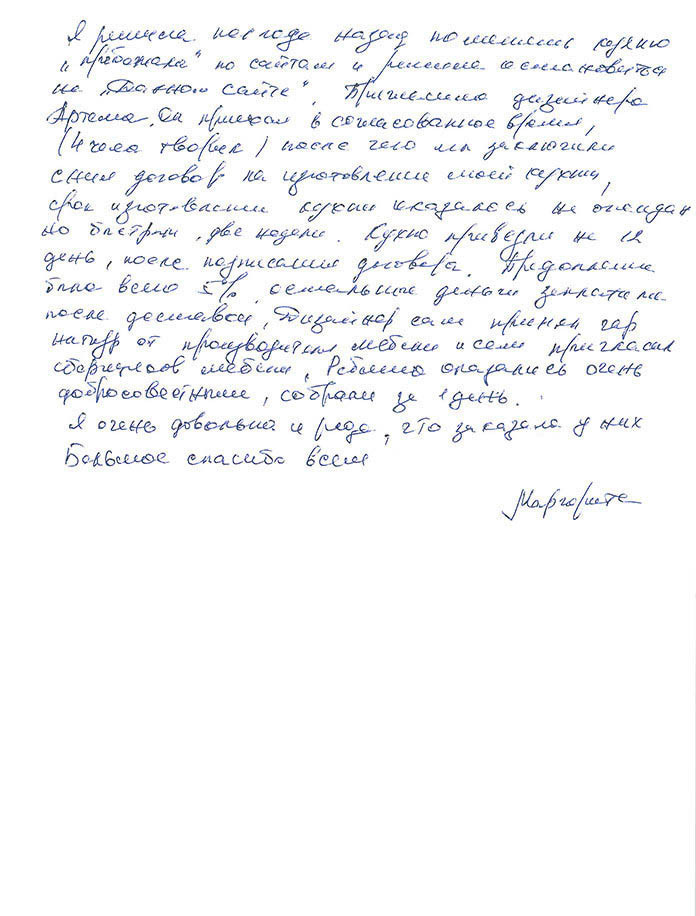 Я решила пол года назад поменять кухню
„пробежала" по сайтам и решила остановиться
на „Данном сайте". Пригласила дизайнера
Артема. Он приехал в согласованное время,
(4 часа творил) после чего мы заключили
с ним договор на изготовление моей кухни,
срок изготовления кухни оказалось не ожидан
но быстрым, две недели. Кухню привезли на 12
день, после подписания договора. Предоплата
была всего 5%, остальные деньги заплатила
после доставки, Дизайнер сам принял гар
нитур от производителя мебели и сам пригласил
сборщиков мебели, Ребята оказались очень
добросовестными, собрали за 1 день.
Я очень довольна и рада, что заказала у них
Большое спасибо всем
Маргарита